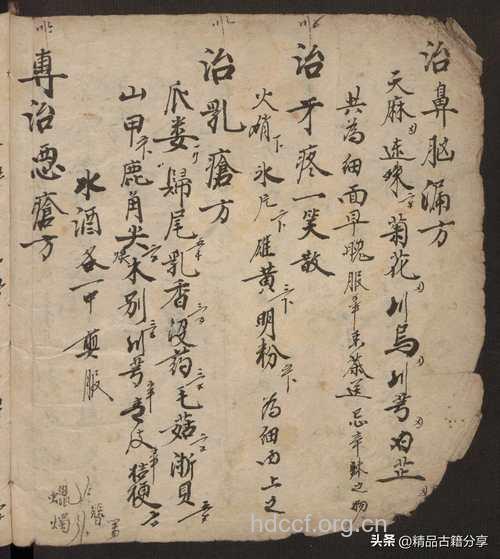 治鼻脑漏方
天麻 菊花 川烏 川芎 白芷
共為細面早晚服 茶送忌辛辣之物
治牙疼一笑散
火硝 冰片 雄黃 明粉 為細面上之
治乳瘡方
瓜蒌 歸尾 乳香 没药 毛菇 浙貝
山甲 鹿角尖 木别 川芎 青皮 桔梗
水酒各一中煎服
專治惡瘡方
蠟燭
hdccf.org.cn
头条 @精品古籍分享